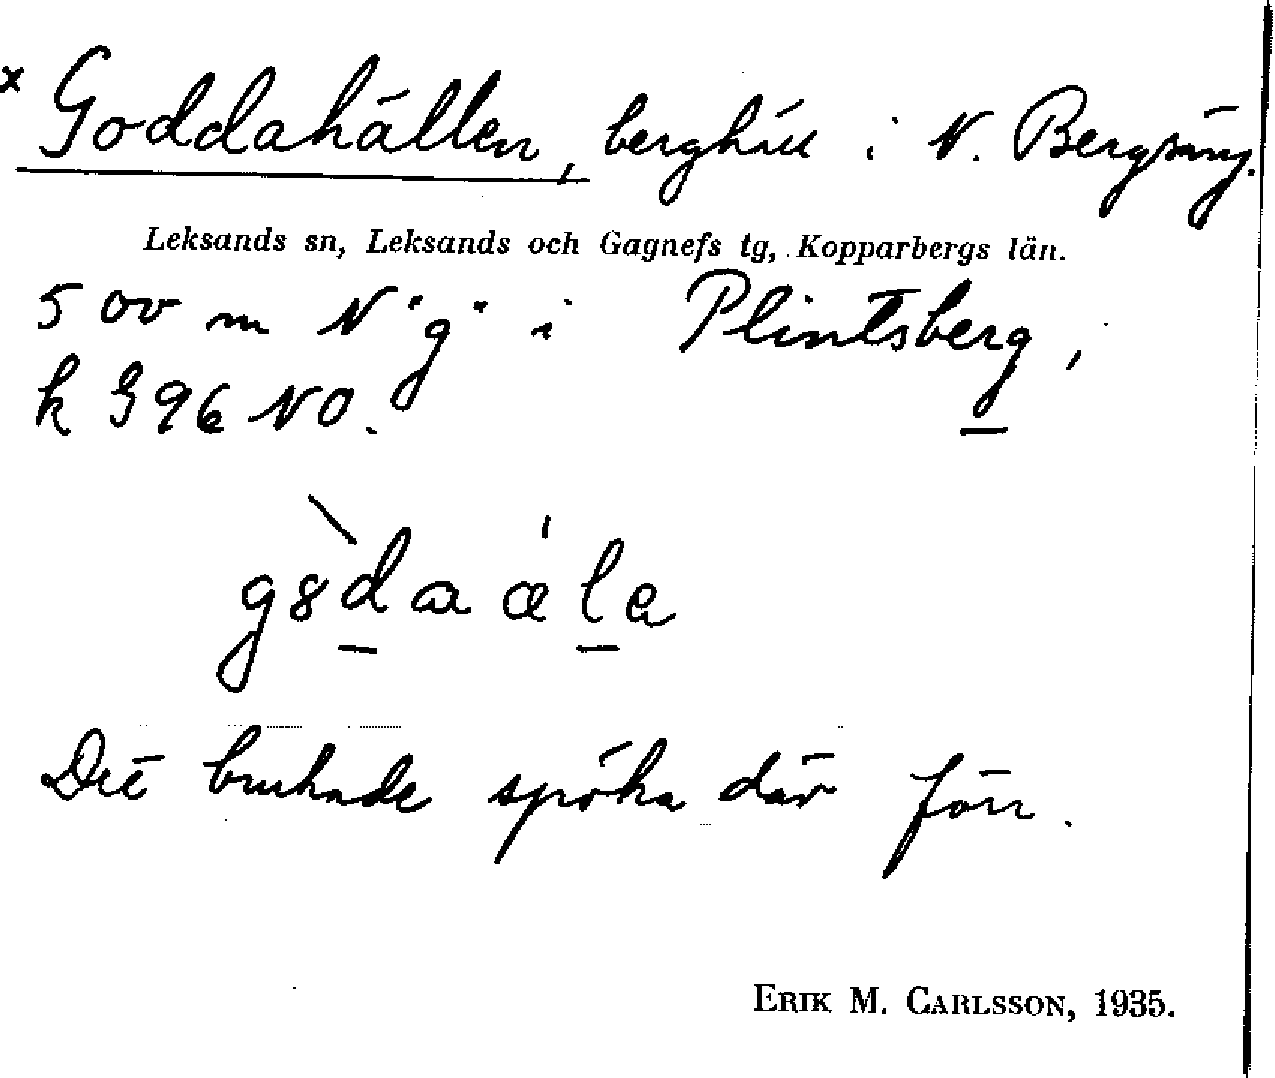 x Goddahällen, berghäll i N. Bergsäng.
Leksands sn, Leksands och Gagnefs tg, Kopparbergs län.
500 m N "g" i Plintsberg,
k 396 NO.
g8̀da æ'la
Det brukade spöka där förr.
ERIK M. CARLSSON, 1935.